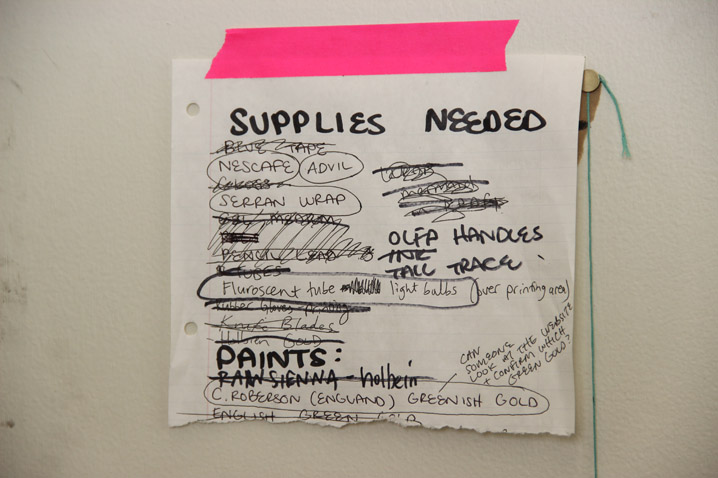 SUPPLIES NEEDED
BLUE TAPE
NESCAFE ADVIL
GLOSS
SERRAN WRAP
GEL MEDIUM
PENCIL LEAD
TUBES
OLFA HANDLES
INK
TALL TRACE
Fluroscent tube light bulbs (over printing area)
rubber gloves printing
Knife Blades
Holbein GOLD
PAINTS:
RAW SIENNA - holbein
C. ROBERSON (ENGLAND) GREENISH GOLD
ENGLISH GREEN GOLD
CAN
SOMEONE
LOOK AT THE WEBSITE
+ CONFIRM WHICH
GREEN GOLD?